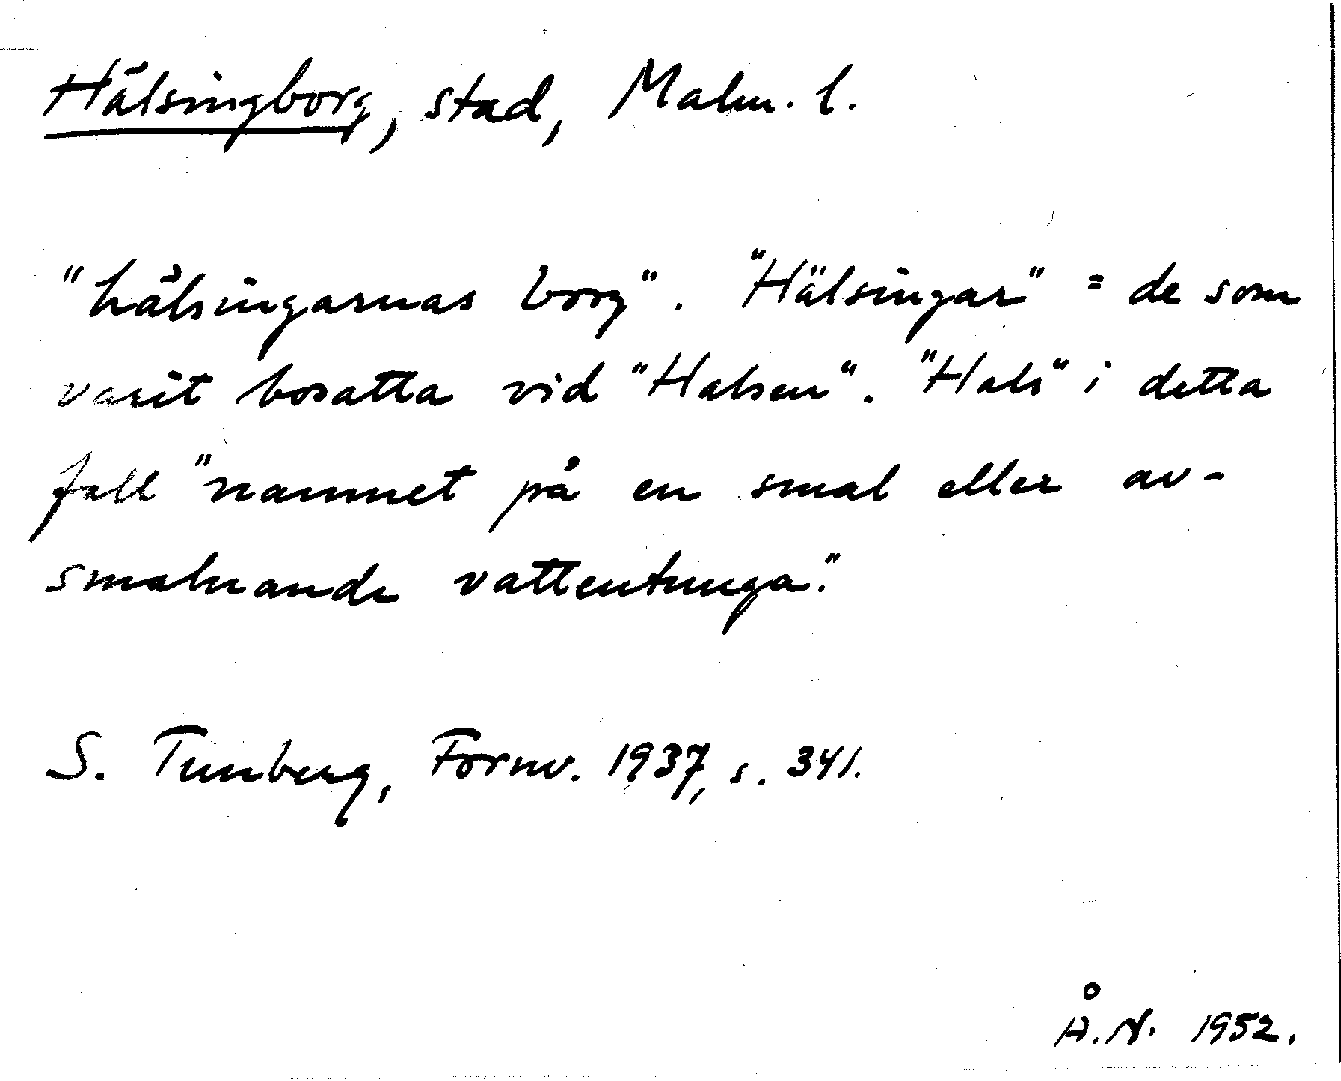 Hälsingborg, stad, Malm. l.
"hälsingarnas borg". "Hälsingar" = de som
varit bosatta vid "Halsen". "Hals" i detta
fall "namnet på en smal eller av-
smalnande vattentunga."
S. Tunberg, Fornv. 1937, s. 341.
Å.N. 1952.